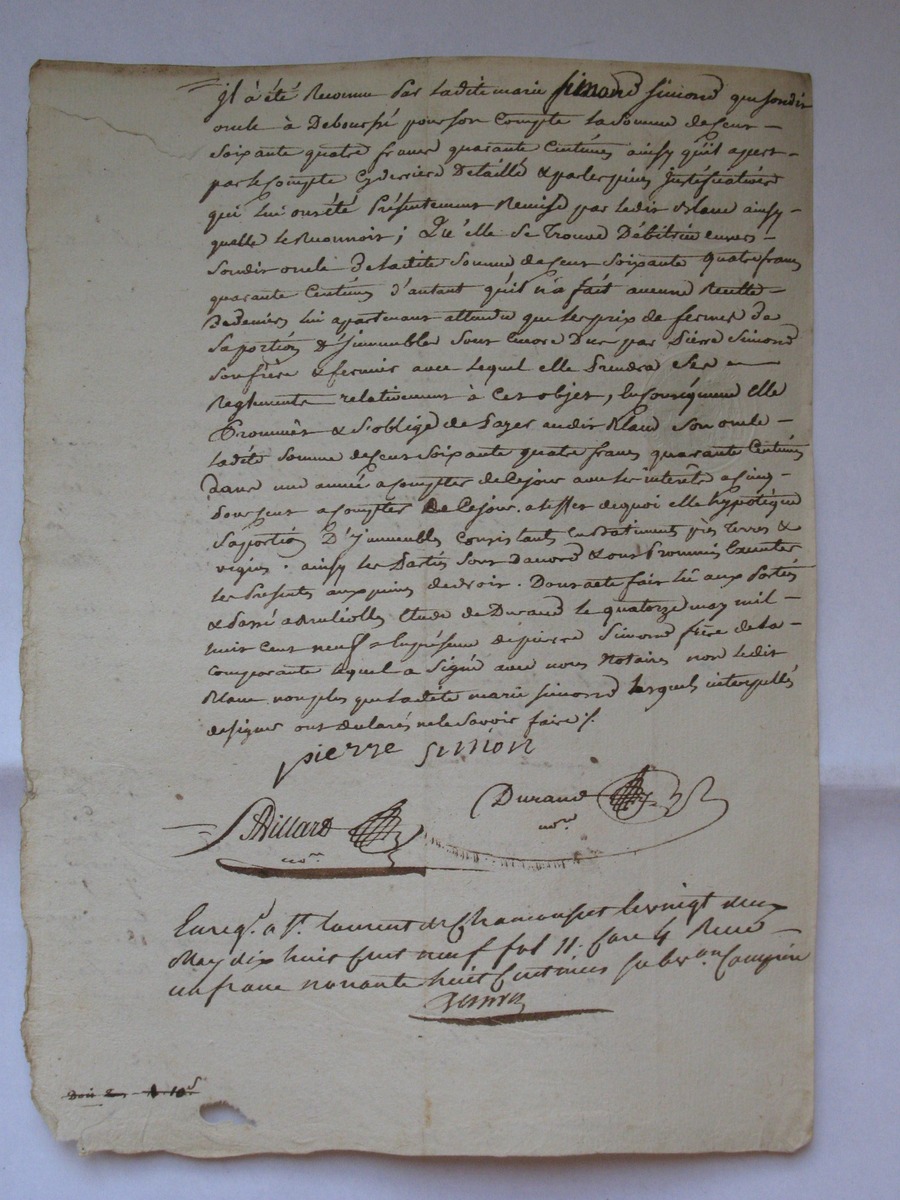 jl à été Reconnu Par Ladite marie simond simond que sondit
oncle à Deboursé pour son Compte La Somme de Cent
Soixante quatre francs quarante Centimes ainsy qu'il apert
par le Compte Cy derrière Detaillé & par les pieces Justificatives
qui lui ont été Présentement Remises par ledit Blanc ainsy
quelle le Reconnoit; Qu'elle se Trouve Débitrice envers
Sondit oncle De ladite Somme de Cent Soixante Quatre francs
quarante Centimes d'autant qu'il n'a fait aucune Recette
De deniers lui apartenant attendu que les prix de fermes de
Sa portion d'jmmeubles Sont encore Dus par Pierre Simond
Son frère & fermier avec lequel elle Prendra Ses
Reglements relativement à Ces objets, En Conséquence elle
Prommèt & S'oblige de Payer audit Blanc Son oncle
Ladite Somme de Cent Soixante quatre francs quarante Centimes
Dans une année a Compter de Ce jour avec les interêts a Cinq
Pour Cent a Compter de Ce jour. a leffet de quoi elle hypotèque
Sa portion D'jmmeubles Consistants en Batiments près Terres &
vignes. ainsy les Parties Sont D'acord & ont Prommis Executer
les Presents aux peines de droit. Dont acte fait lû aux Parties
& Passé Etude de Durand le quatorze may mil
huit Cent neuf en la présence de pierre Simond frère de la
Comparante lequel a Signé avec nous Notaires non ledit
Blanc non plus que ladite marie Simond lesquels interpellés
de signer ont declarés ne le Savoir faire /.
pierre simon
Durand
no.re
Millard
no.re
Enreg.é a S.t laurent de Chamousset le vingt deux
May dix huit Cent neuf fol 11. Case 4 Recu
un franc nonante huit Centimes subv.on Comprise
Doit 2